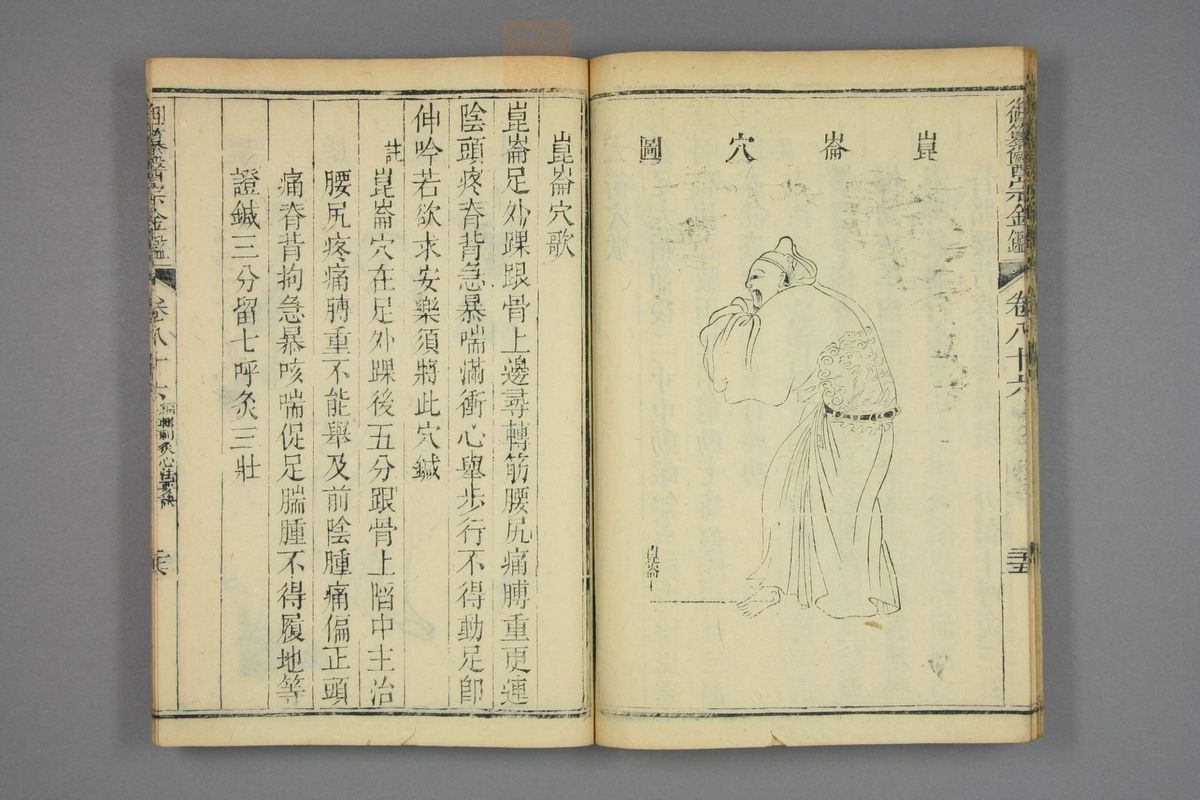 御纂醫宗金鑑
卷八十六
三十五
崑崙穴圖
崑崙
崑崙穴歌
崑崙足外踝跟骨上邊尋轉筋腰尻痛膊重更連
陰頭疼脊背急暴喘滿衝心舉步行不得動足卽
伸吟若欲求安樂須將此穴鍼
註
崑崙穴在足外踝後五分跟骨上陷中主治
腰尻疼痛膊重不能舉及前陰腫痛偏正頭
痛脊背拘急暴咳喘促足腨腫不得履地等
證鍼三分留七呼灸三壯
御纂醫宗金鑑
卷八十六
編輯刺灸心法要訣